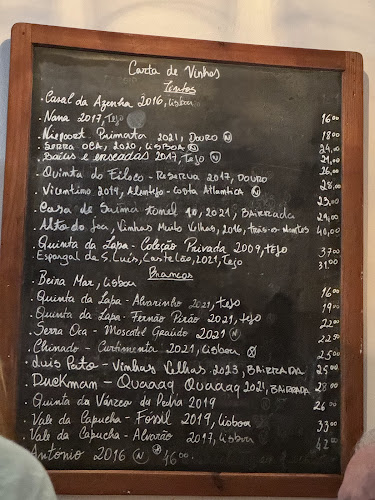 Carta de Vinhos
Tintos
. Casal da Azenha 2016, Lisboa
. Nana 2017, Tejo 16,00
. Niepoort - Primata 2021, DOURO N 18,00
. SERRA OCA, 2020, LISBOA N 24,00
. Baías e enseadas 2017, Tejo N 21,00
. Quinta do Filoco - RESERVA 2017, DOURO 26,00
. Vicentino 2019, Alentejo - Costa Atlantica N 28,00
. Casa de Saima tonel 10, 2021, BAIRRADA 23,00
. Alto do Joa, Vinhas Muito Velhas, 2016, trás-os-Montes 29,00
. Quinta da Lapa - Coleção Privada 2009, TEJO 40,00
. Espargal da S. Luís, Castelão, 2021, Tejo 37,00
Brancos 31,00
. Beira Mar, Lisboa
. Quinta da Lapa - Alvarinho 2021, tejo 16,00
. Quinta da Lapa - Fernão Pirão 2021, tejo 19,00
. Serra Oca - Moscatel Graúdo 2021 N 22,00
. Chinado - Curtimenta 2021, Lisboa N 22,50
. Luis Pato - Vinhas Velhas 2023, BAIRRADA 25,00
. Duckman - Quaaag Quaaag 2021, BAIRRADA 28,00
. Quinta da Várzea da Pedra 2019 26,00
. Vale da Capucha - Fóssil 2019, Lisboa 33,00
. Vale da Capucha - Alvarão 2017, Lisboa 42,00
. António 2016 N * 46,00